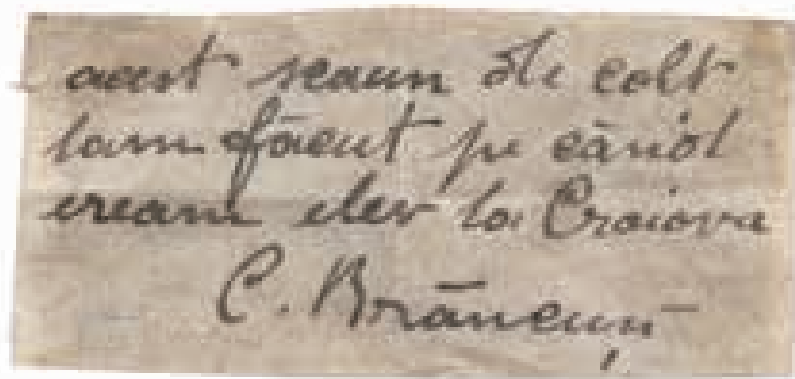 acest scaun de colt
lam făcut pe cănd
eream elev la Craiova
C. Brăncuși